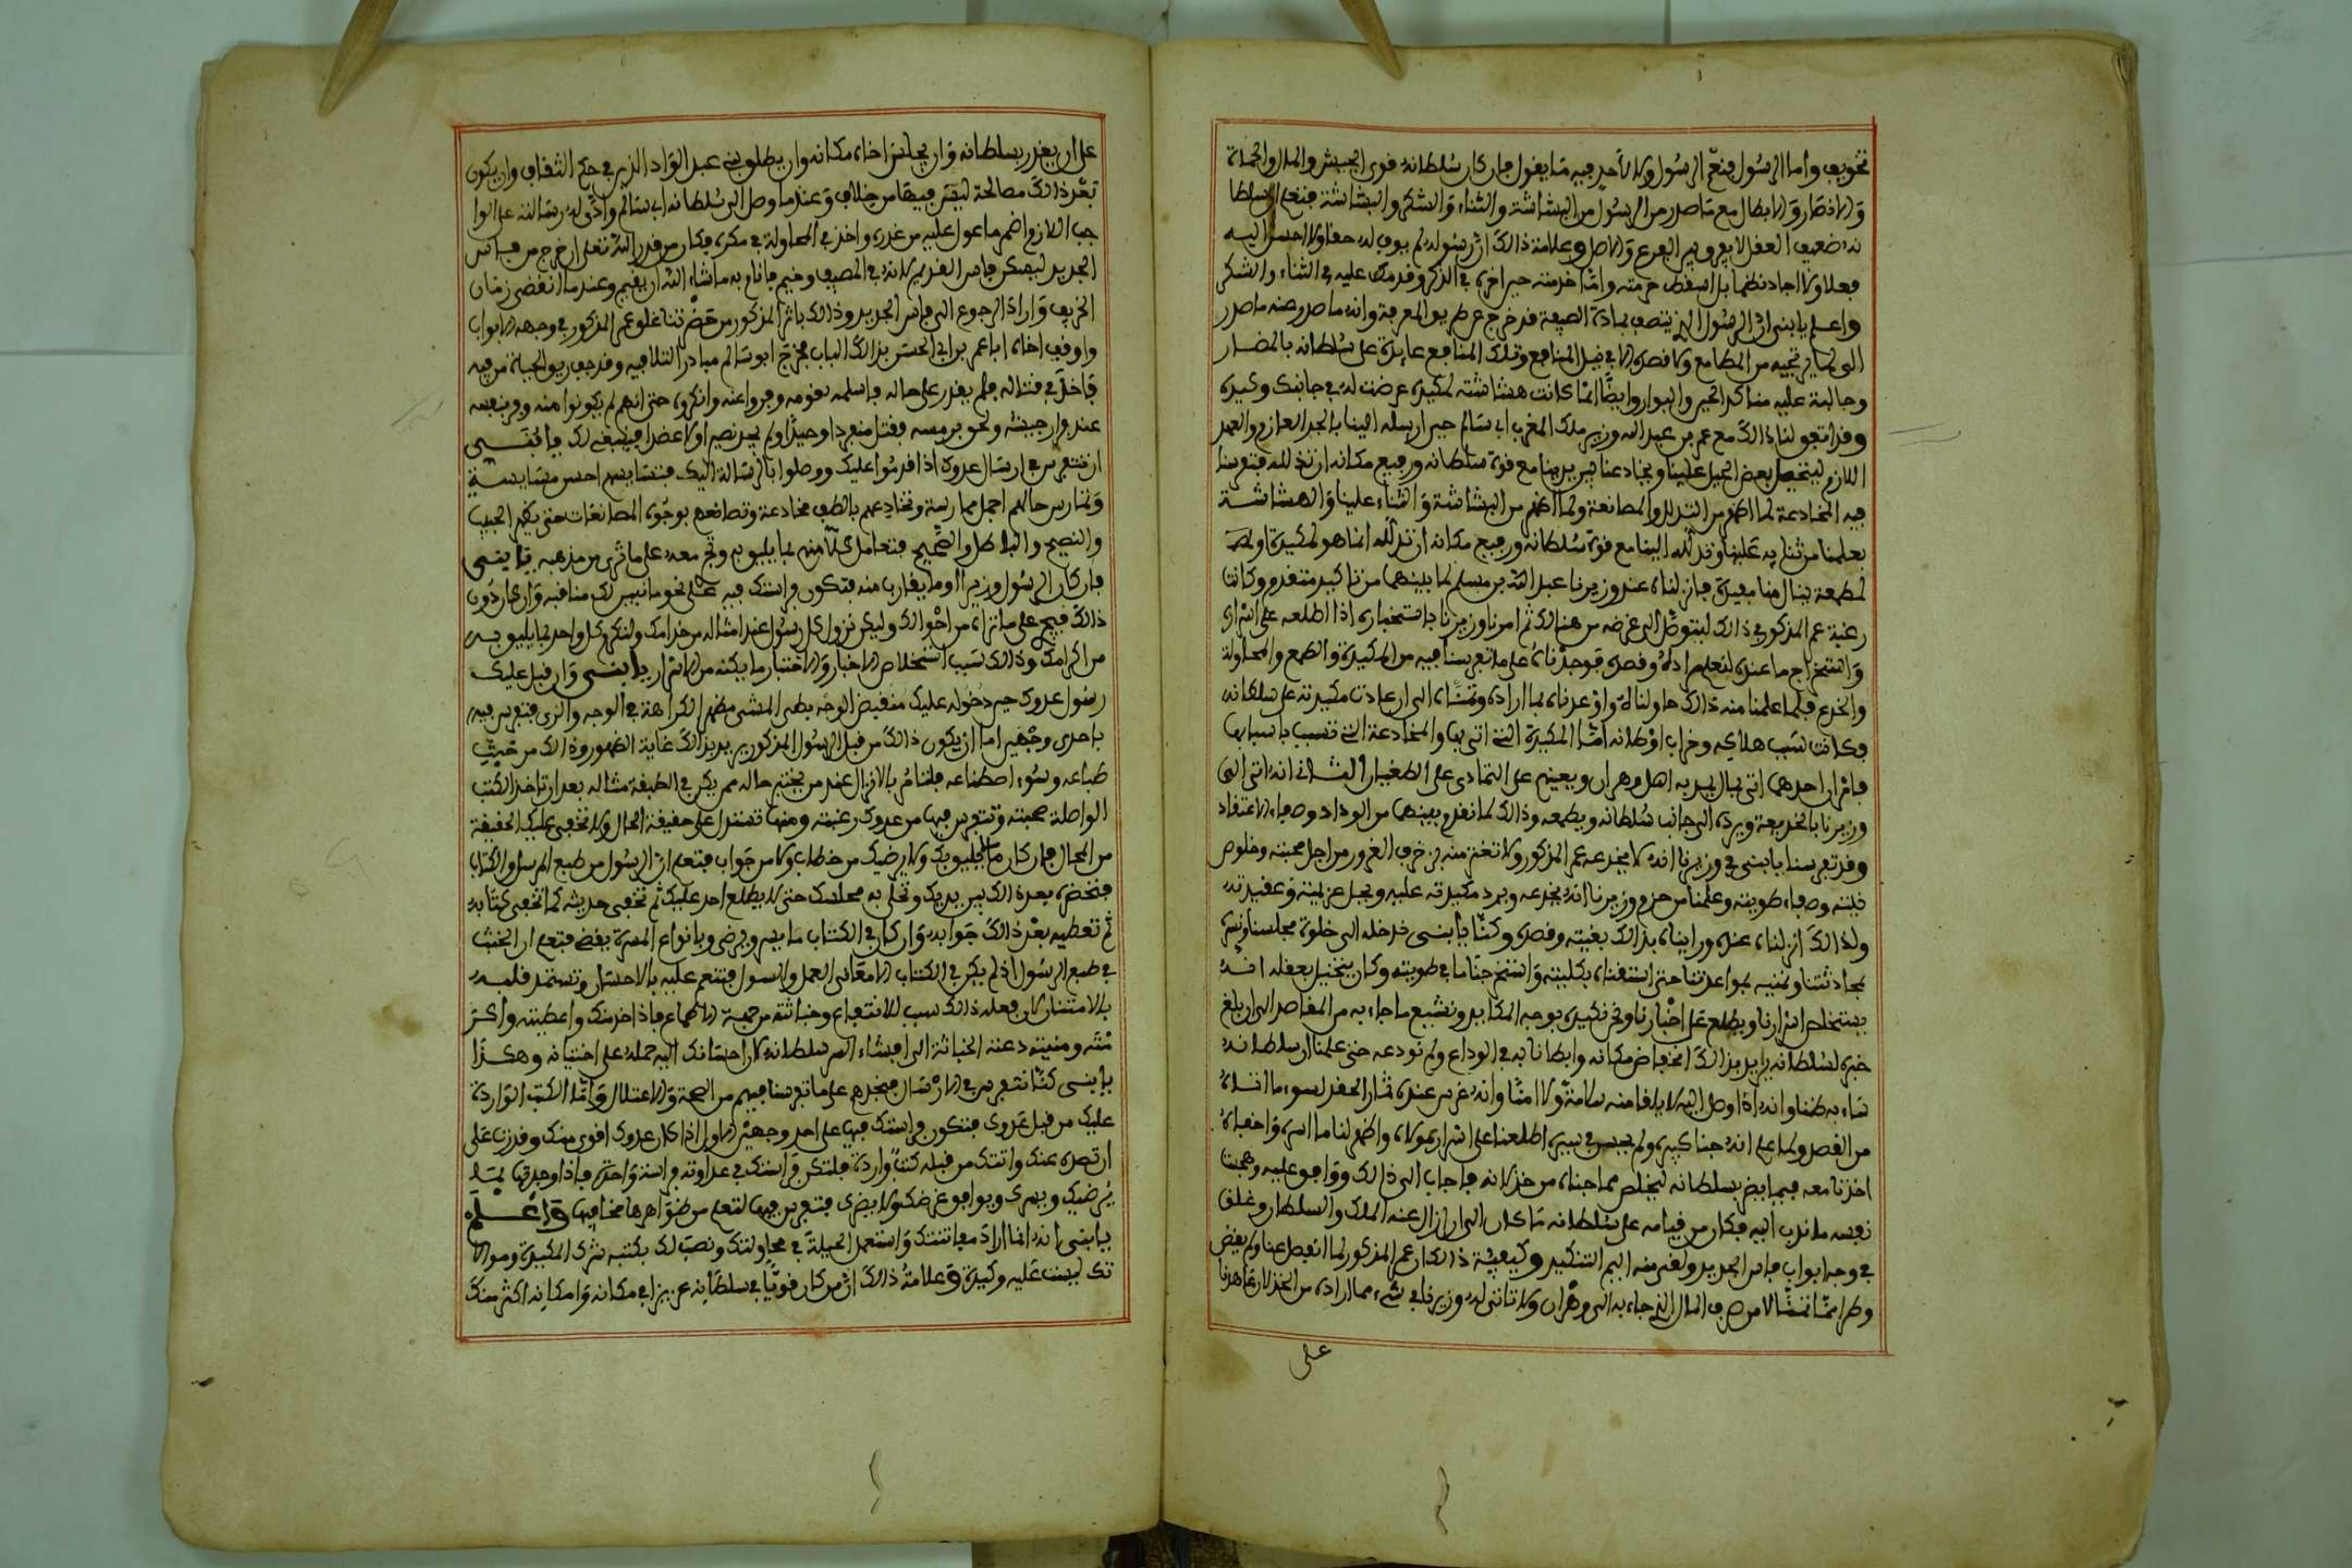 تخويف واما الرسول فنعم الرسول ولا لأحد فيه ما يقول فإن كان سلطانه قوى الجيش والمال والحماة
والانصار والابطال مع ما صدر من الرسول من البشاشة والثناء والشكر والبشاشة فتعلم ان سلطا
نه ضعيف العقل لا يفرق بين الفرع والاصل وعلامة ذالك ان رسوله لم يوف له حقا ولا احسن اليه
فعلا ولا اجاد نظما بل اسقط حرمته
واعلم يا بنى ان الرسول الذي يتصف بهاذه الصيفة قد خرج عن طريق المعرفة وانه ما صدر منه ما صدر
الى لما يرتجيه من المطامع ولا قصده الا في نيل المنافع وتلك المنافع عايدة على سلطانه بالمضار
وجالبة عليه مناكد الخير والبوار وايضا انما كانت هشاشته لمكيدة عرضت له في جانبك وكيده
وقد اتفق لنا ذالك مع عمر بن عبد الله وزير ملك المغرب ابى سالم حين ارسله الينا بالجد العازم والعهد
اللازم ليتحيل بعض الحيل علينا ويخادعنا فيما يريد منا مع قوة سلطانه ورفيع مكانه فتفرسنا
فيه المخادعة لما اظهر من التذلل والمصانعة ولما اظهر من البشاشة والثناء علينا والهشاشة
فعلمنا من ثنايه علينا وتذلله الينا مع قوة سلطانه ورفيع مكانه ان تذلله انما هو لمكيدة او
لمطمعة ينال منا بفيدة فانزلناه عند وزيرنا عبد الله بن مسلم لما بينهما من تاكيد متقدم وكانت
رغبة عمر المذكور في ذالك ليتوصل الى غرضه من هنالك ثم امرنا وزيرنا باستخباره اذا اطلعه على اسراره
واستخراج ما عنده لنعلم مراده وقصده فوجدناه على ما تفرسنا فيه من المكيدة والطمع والمحاولة
والخدع فلما علمنا منه ذالك حاولناه واوعدناه بما اراده وتمناه الى ان عادت مكيدته على سلطانه
وكانت سبب هلاكه وخراب اوطانه اما المكيدة التي اتى بها والمخادعة التي تسبب باسبابها
فامران احدهما اتى بمال يمد به اهل وهران ويعينهم على التمادى على الطغيان والثانى انه اتى الى
وزيرنا بالخديعة ويرده الى جانب سلطانه ويطمعه وذالك لما تقدم بينهما من الوداد وصفاء الاعتقاد
وقد تفرسنا يا بنى في وزيرنا انه لا يخدعه عمر المذكور ولا تغتر منه بزخرف الغرور من اجل محبته وخلوص
نيته وصفاء طويته وعلمنا من حزم وزيرنا انه يخدعه ويرد مكيدته عليه ويحل عزيمته وعقيدته
ولذالك انزلناه عنده ورايناه بذالك بغيته وقصده وكنا يا بنى ندخله الى خلوة مجلسنا ونسره
بمحادثتنا ونمنيه بمواعدتنا حتى استفدناه بكليته واستخرجنا ما في طويته وكان يتخيل بعقله انه
يستخلص اسرارنا ويطلع على اخبارنا ونحن نكيده بوجه المكايد ونشيع ما جاء به من المقاصد الى ان بلغ
خبره لسلطانه يريد بذالك انخفاض مكانه وابطانا به في الوداع ولم نودعه حتى علمنا ان سلطانه
ساء به ظنا وانه اذا وصل اليه لا يلقا منه سلامة ولا امنا وانه غرس عنده ثمار الحقد لسوء ما اتلاه
من القصد ولما علم انه جنا كبيره ولم يحسن في سيره اطلعنا على اسرار مولاه واظهر لنا ما اسره واخفاه
اخذنا معه فيما يضر بسلطانه ليخلص مما جناه من خذلانه فاجاب الى ذالك ووافق عليه وعجبت
نفسه ما ندب اليه فكان من قيامه على سلطانه ما كان الى ان ازال عنه الملك والسلطان وغلق
في وجه ابواب فاس الجديد ولقي منه اليم التنكيد وكيفية ذالك ان عمر المذكور لما انفصل عنا ولم يقض
وطرا مما تمنا لا من صرف المال الذي جاء به الى وهران ولا تاتى له وزيرنا في شيء مما اراده من الخذلان تعاهدنا
على
على ان يغدر بسلطانه وان يجلس اخاه مكانه وان يطلق بنى عبد الواد الذين في حكم الثقاف وان يكون
بعد ذالك مصالحة ليس فيها من خلاف وعند ما وصل الى سلطانه ابى سالم وادى له رسالته على الوا
جب اللازم اضمر ما عول عليه من غدره واخذ في المحاولة في مكره فكان من قدر الله تعلى ان خرج من فاس
الجديد ليسكن فاس القديم لانه في المصيف وخيم فاقام به ما شاء الله ان يقيم وعند ما انقضى زمان
الخريف واراد الرجوع الى فاس الجديد وذالك باثر المذكور من حضرتنا غلق عمر المذكور في وجهه الابواب
واوقف اخاه ابا عمر بن ابى الحسن بذالك الباب فخرج ابو سالم مبادرا لتلافيه وقد جعل يفرق الجباة من فيه
فاخذ في قتاله فلم يقدر على حاله فاسلمه قومه وفروا عنه وانكروه حتى انهم لم يكونوا منه وفر بنفسه
عند فرار جيشه ولحق برمسه فقتل منفردا وحيدا ولم يجد نصيرا ولا عضدا فينبغى لك يا بنى
ان تتفرس في ارسال عدوك اذا قدموا عليك ووصلوا بالرسالة اليك فتسايسهم احسن مسايسة
وتمارس حالهم اجمل ممارسة وتخادعهم بالطف مخادعة وتصانعهم بوجوه المصانعات حتى يظهر الحبيب
والنصيح والباطل والصحيح فتعامل كلا منهم بما يليق به وتجر معه على ما ترى من مذهبه يا بنى
فان كان الرسول وزيرا او ما يقارب منه فتكون فراستك فيه على نحو ما تبين لك من مناقبه وان كان دون
ذالك فيجرى على ما تراه من احوالك وليكن نزول كل رسول عند امثاله من خدامك ولتكرم كل واحد بما يليق به
من اكرامك وذالك سبب استخلاص الاخبار والاختبار ما يكنه من الاسرار يا بنى وان قبل عليك
رسول عدوك حين دخوله عليك منقبض الوجه بطى المشى مظهر الكراهة في الوجه والزى فتفرس فيه
باحدى وجهين اما ان يكون ذالك من قبل الرسول المذكور يريد بذالك غاية الظهور وذالك من خبث
طباعه وسوء اصطناعه فلتامر بالانزال عند من يختبر حاله ممن يكن في الطبقة مثاله بعد ان تاخذ الكتب
الواصلة صحبته وتتفرس فيها من عدوك رغبته ومنها تستدل على حقيقة الحال ولا تخفى عليك الحقيقة
من المحال فان كان ما يليق بك ولا يرضيك من خطاب ولا من جواب فتعلم ان الرسول من طبع المرسل والكتاب
فتحضره بعد ذالك بين يديك وتخلى به مجلسك حتى لا يطلع احد عليك ثم تخفى حديثه كما تخفى كتابه
ثم تعطيه بعد ذالك جوابه وان كان في الكتاب ما يسر ويرضى وبانواع المسرة يقضى فتعلم ان الخبث
في طبع الرسول اذ لم يكن في الكتاب الا معانى العمل والسول فتنعم عليه بالاحسان وتستمد قلبه
بالامتنان لان فعله ذالك سبب للانتفاع وخباثته من جهة الاطماع فاذا اخدمك واعطيته واكثر
منه ومنيته دعته الخباثة الى افشاء سر سلطانه لان احسانك اليه حمله على اختيانه وهكذا
يا بنى كنا نتفرس في الارسال فنخدع على ما تفرسنا فيهم من الصحة والاعتلال واما الكتب الواردة
عليك من قبل عدوك فتكون فراستك فيها على احد وجهين الاول اذا كان عدوك اقوى منك وقدرت على
ان تصده عنك واتتك من قبله كتب واردة فلتكن فراستك في عداوته فراسة واحدة فاذا وجدتها بما
يرضيك ويسرك ويوافق غرضك ولا يضرك فتتفرس فيها لتعلم من ظواهرها مخافيها واعلم
يا بنى انه انما اراد مفاتنتك واستعمل الحيلة في محاولتك ونصب لك بكتبه شرك المكيدة وموالا
تك ليست عليه وكيدة وعلامة ذالك ان من كان قويا في سلطانه عزيزا في مكانه وامكانه اكثر منك